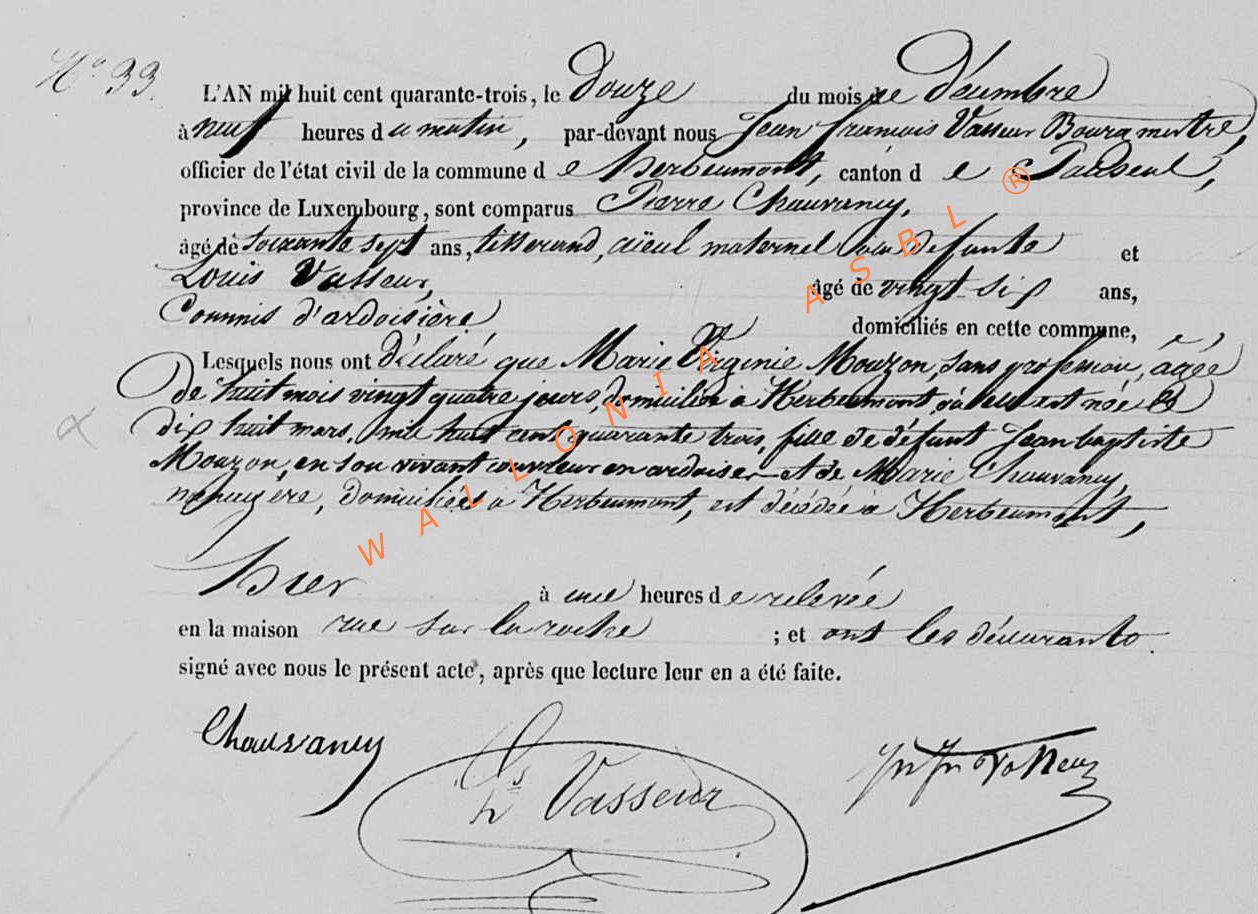 N° 33.
L'AN mil huit cent quarante-trois, le Douze du mois de Décembre
à neuf heures du matin, par-devant nous Jean françois Vasseur Bourgmestre,
officier de l'état civil de la commune de herbeumont, canton de Paliseul,
province de Luxembourg, sont comparus Pierre Chauvancy,
âgé de soixante sept ans, tisserand, aïeul maternel de la defunte et
Louis Vasseur, âgé de vingt six ans,
Commis d'ardoisière domiciliés en cette commune,
Lesquels nous ont déclaré que Marie Virginie Mouzon, sans profession, âgée
de huit mois vingt quatre jours, domiciliée à Herbeumont, où elle est née le
dix huit mars, mil huit cent quarante trois, fille de défunt Jean baptiste
Mouzon, en son vivant couvreur en ardoises et de Marie Chauvancy,
ménagère, domiciliées à Herbeumont, est décédée à Herbeumont,
hier à une heures de relevée
en la maison rue sur la roche ; et ont les déclarants
signé avec nous le présent acte, après que lecture leur en a été faite.
Chauvancy
Ls Vasseur
Jn Fn Vasseur
WALLONIA ASBL ®